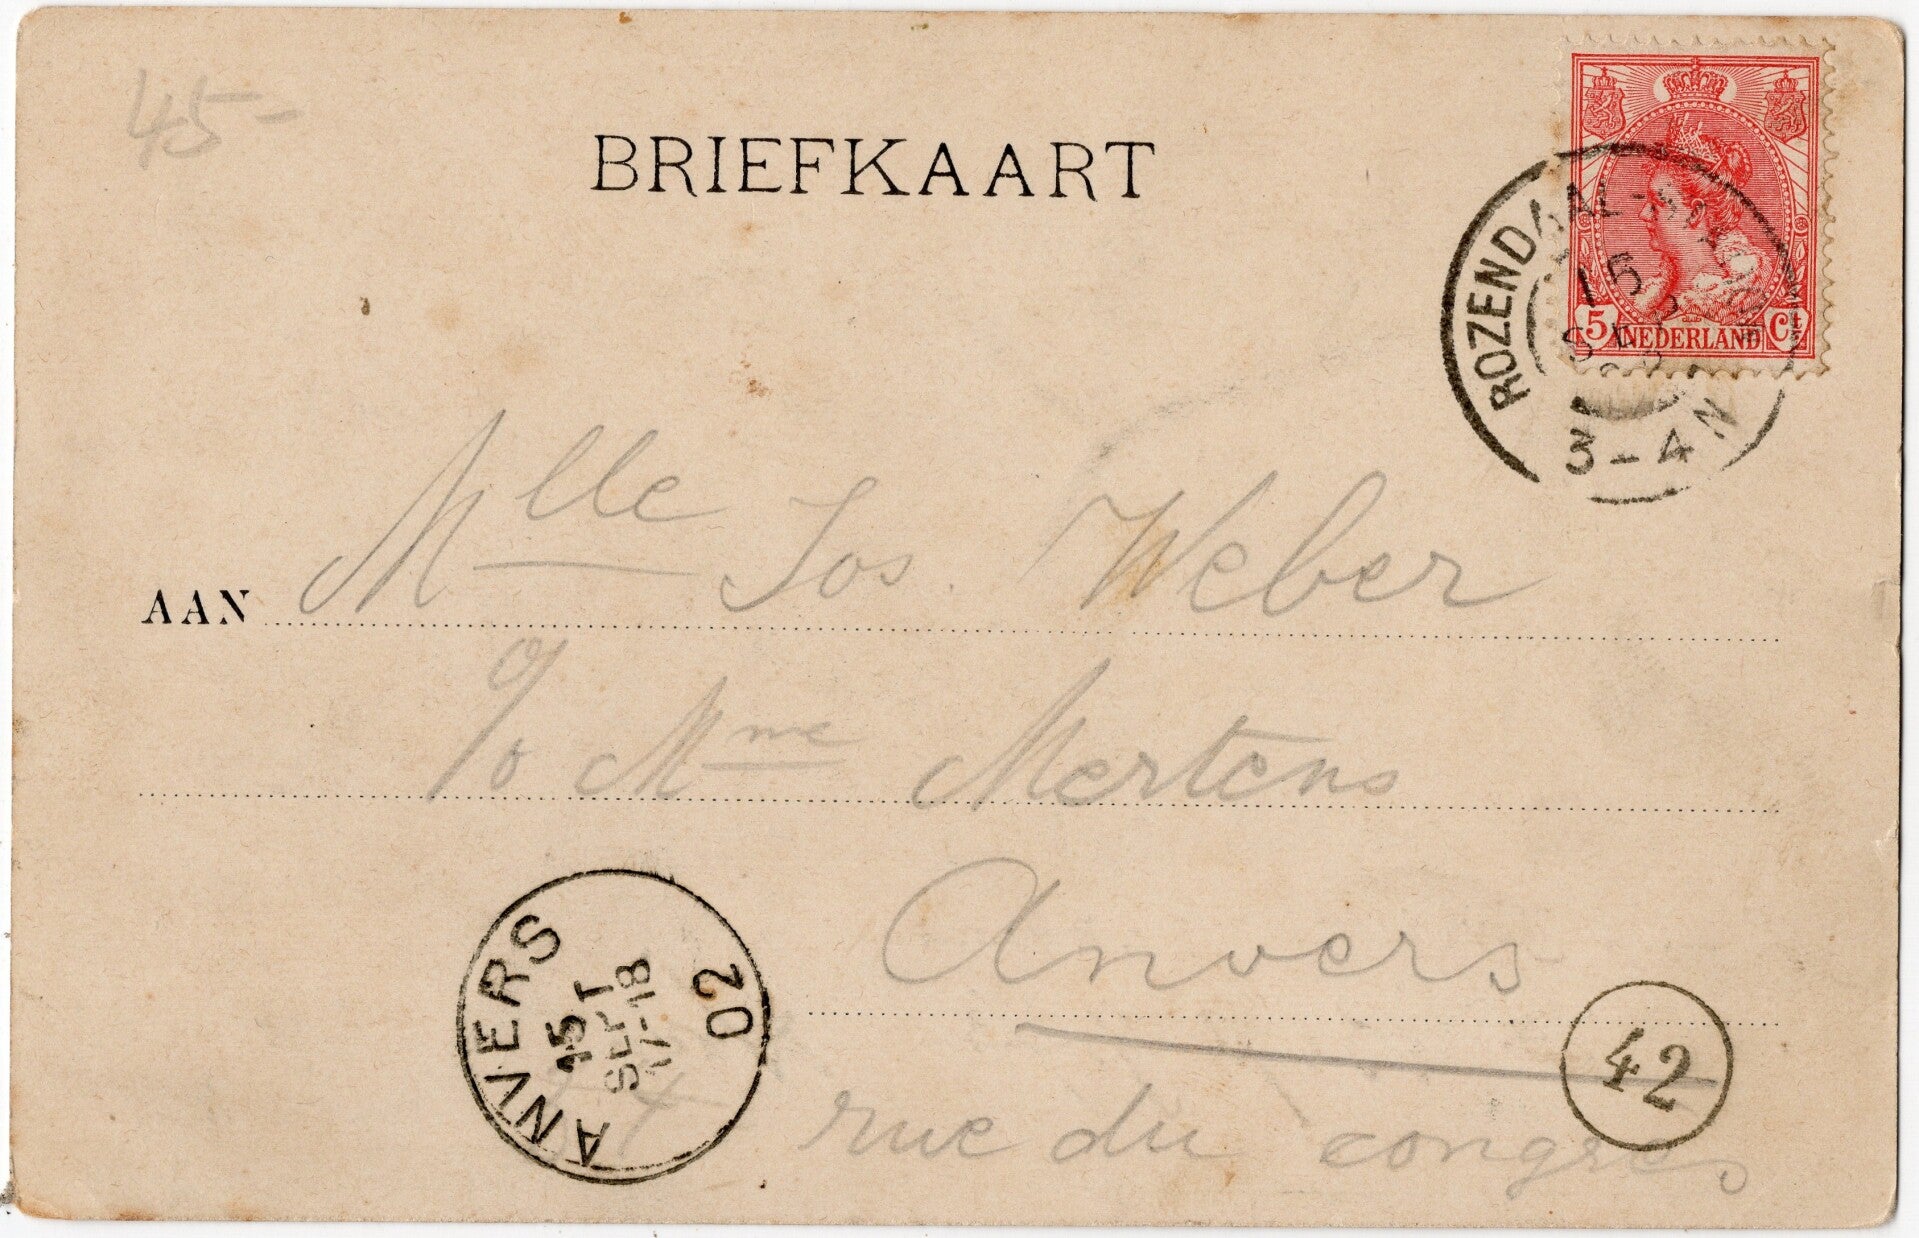 45-
BRIEFKAART
5 NEDERLAND Ct
ROZENDAAL
15
SEP
3-4 N
AAN Mlle Jos. Weber
c/o Mme Mertens
Anvers
rue du congres
ANVERS
15
SEPT
17-18
02
42